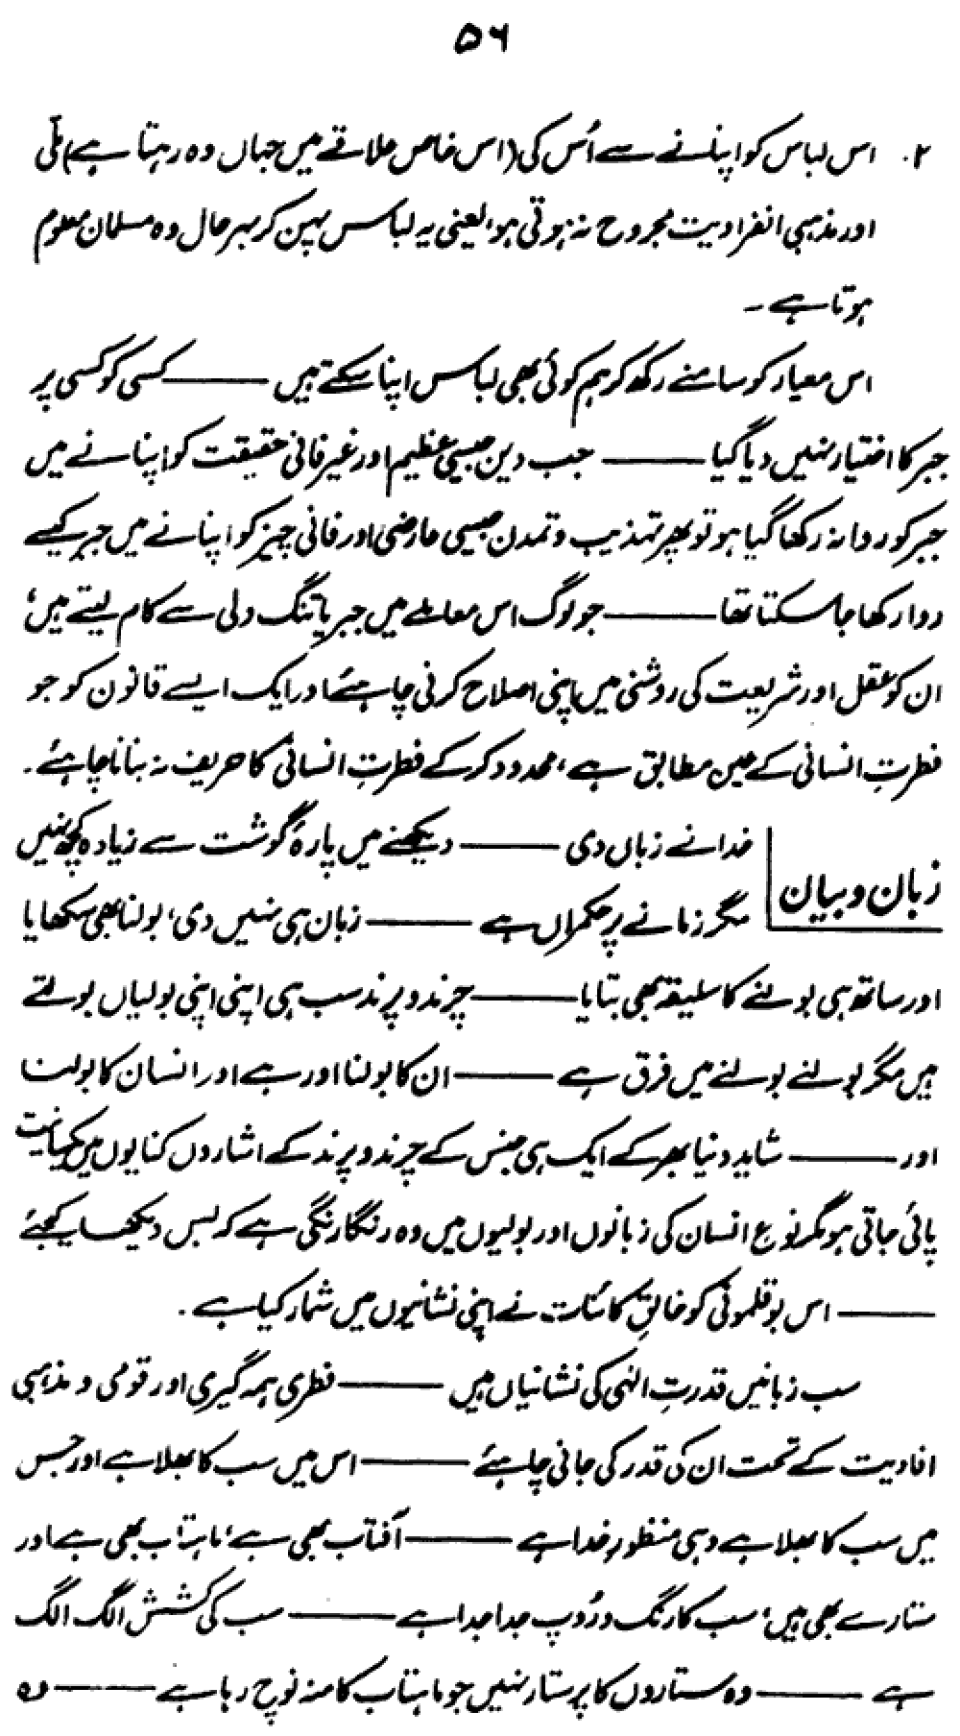 ۵۶
۲. اس لباس کو اپنانے سے اُس کی (اس خاص علاقے میں جہاں وہ رہتا ہے) ملّی
اور مذہبی انفرادیت مجروح نہ ہوتی ہو، یعنی یہ لباس پہن کر بہر حال وہ مسلمان معلوم
ہوتا ہے۔
اس معیار کو سامنے رکھ کر ہم کوئی بھی لباس اپنا سکتے ہیں ——— کسی کو کسی پر
جبر کا اختیار نہیں دیا گیا ——— جب دین جیسی عظیم اور غیر فانی حقیقت کو اپنانے میں
جبر کو روا نہ رکھا گیا ہو تو پھر تہذیب و تمدن جیسی عارضی اور فانی چیز کو اپنانے میں جبر کیسے
روا رکھا جا سکتا تھا ——— جو لوگ اس معاملے میں جبر یا تنگ دلی سے کام لیتے ہیں،
ان کو عقل اور شریعت کی روشنی میں اپنی اصلاح کرنی چاہئے اور ایک ایسے قانون کو جو
فطرتِ انسانی کے عین مطابق ہے، محدود کر کے فطرتِ انسانی کا حریف نہ بنانا چاہئے۔
زبان و بیان
خدا نے زباں دی ——— دیکھنے میں پارۂ گوشت سے زیادہ کچھ نہیں
مگر زمانے پر حکمراں ہے ——— زبان ہی نہیں دی، بولنا بھی سکھایا
اور ساتھ ہی بولنے کا سلیقہ بھی بتایا ——— چرند و پرند سب ہی اپنی اپنی بولیاں بولتے
ہیں مگر بولنے بولنے میں فرق ہے ——— ان کا بولنا اور ہے اور انسان کا بولنا
اور ——— شاید دنیا بھر کے ایک ہی جنس کے چرند و پرند کے اشاروں کنایوں میں یکسانیت
پائی جاتی ہو مگر نوعِ انسان کی زبانوں اور بولیوں میں وہ رنگا رنگی ہے کہ بس دیکھا کیجئے
——— اس بوقلمونی کو خالقِ کائنات نے اپنی نشانیوں میں شمار کیا ہے۔
سب زبانیں قدرتِ الٰہی کی نشانیاں ہیں ——— فطری ہمہ گیری اور قومی و مذہبی
افادیت کے تحت ان کی قدر کی جانی چاہئے ——— اس میں سب کا بھلا ہے اور جس
میں سب کا بھلا ہے وہی منظورِ خدا ہے ——— آفتاب بھی ہے، ماہتاب بھی ہے اور
ستارے بھی ہیں، سب کا رنگ و رُوپ جدا جدا ہے ——— سب کی کشش الگ الگ
ہے ——— وہ ستاروں کا پرستار نہیں جو ماہتاب کا منہ نوچ رہا ہے ——— وہ